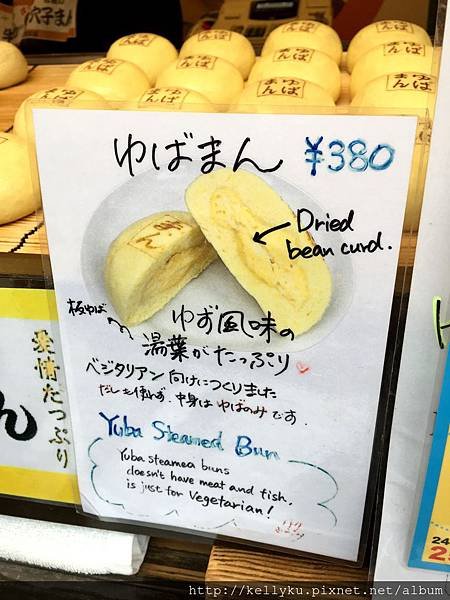 穴子まん
ゆば
まん
ゆばまん ¥380
まん
Dried
bean curd.
板ゆば
ゆず風味の
湯葉がたっぷり
ベジタリアン向けにつくりました
だしを使わず、中身はゆばのみです.
Yuba Steamed Bun
Yuba steamea buns
doesn't have meat and fish.
is just for Vegetarian!
愛情たっぷり
ん
24
2
http://kellyku.pixnet.net/album